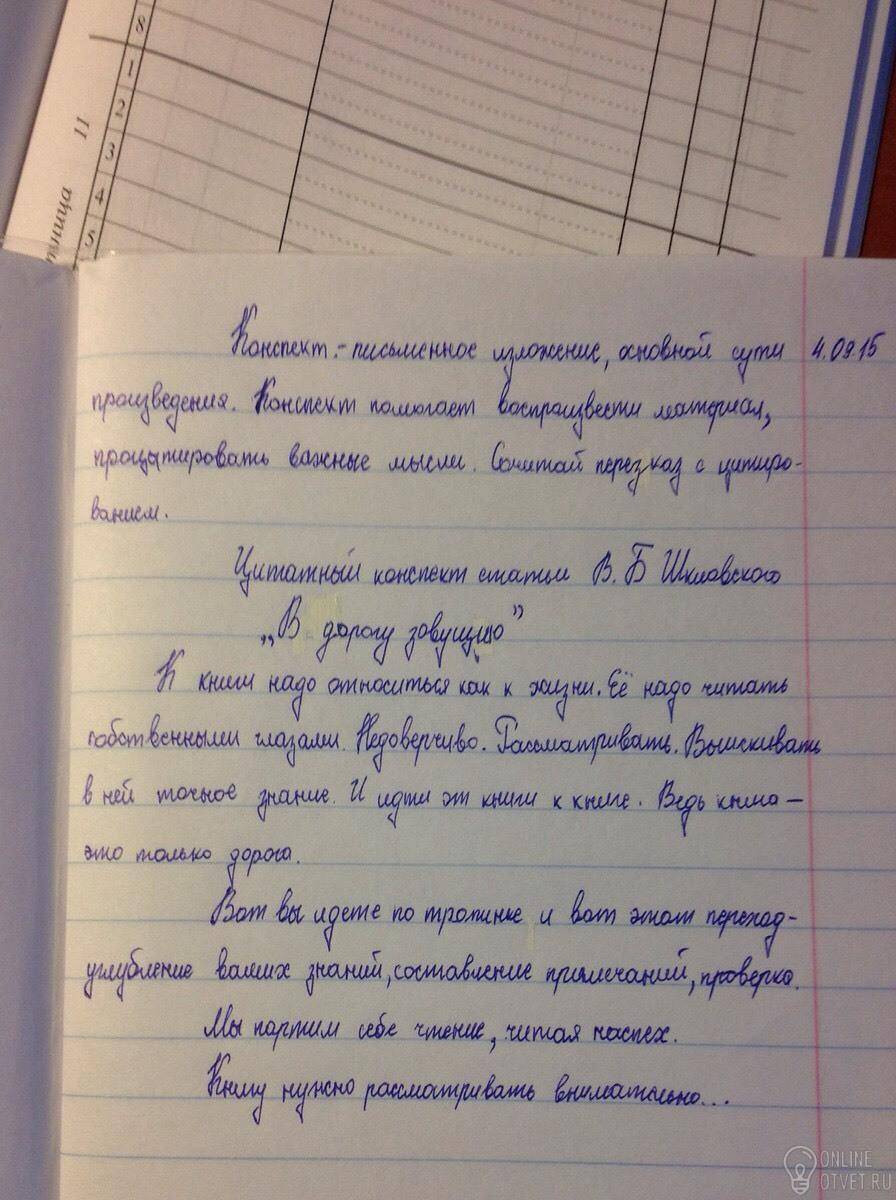 8
1
2
3
4
5
11
тница
Конспект.- письменное изложение, основной сути 4.09.15
произведения. Конспект помогает воспроизвести материал,
процитировать важные мысли. Сочитай пересказ с цитиро-
ванием.
Цитатный конспект статьи В. Б Шкловского
„В дорогу зовущую"
К книги надо относиться как к жизни. Её надо читать
собственными глазами. Недоверчиво. Рассматривать. Выискивать
в ней точное знание. И идти от книги к книге. Ведь книга —
это только дорога.
Вот вы идете по тропинке и вот этот переход-
углубление ваших знаний, составление примечаний, проверка.
Мы портим себе чтение, читая наспех.
Книгу нужно рассматривать внимательно...
ONLINE
OTVET.RU